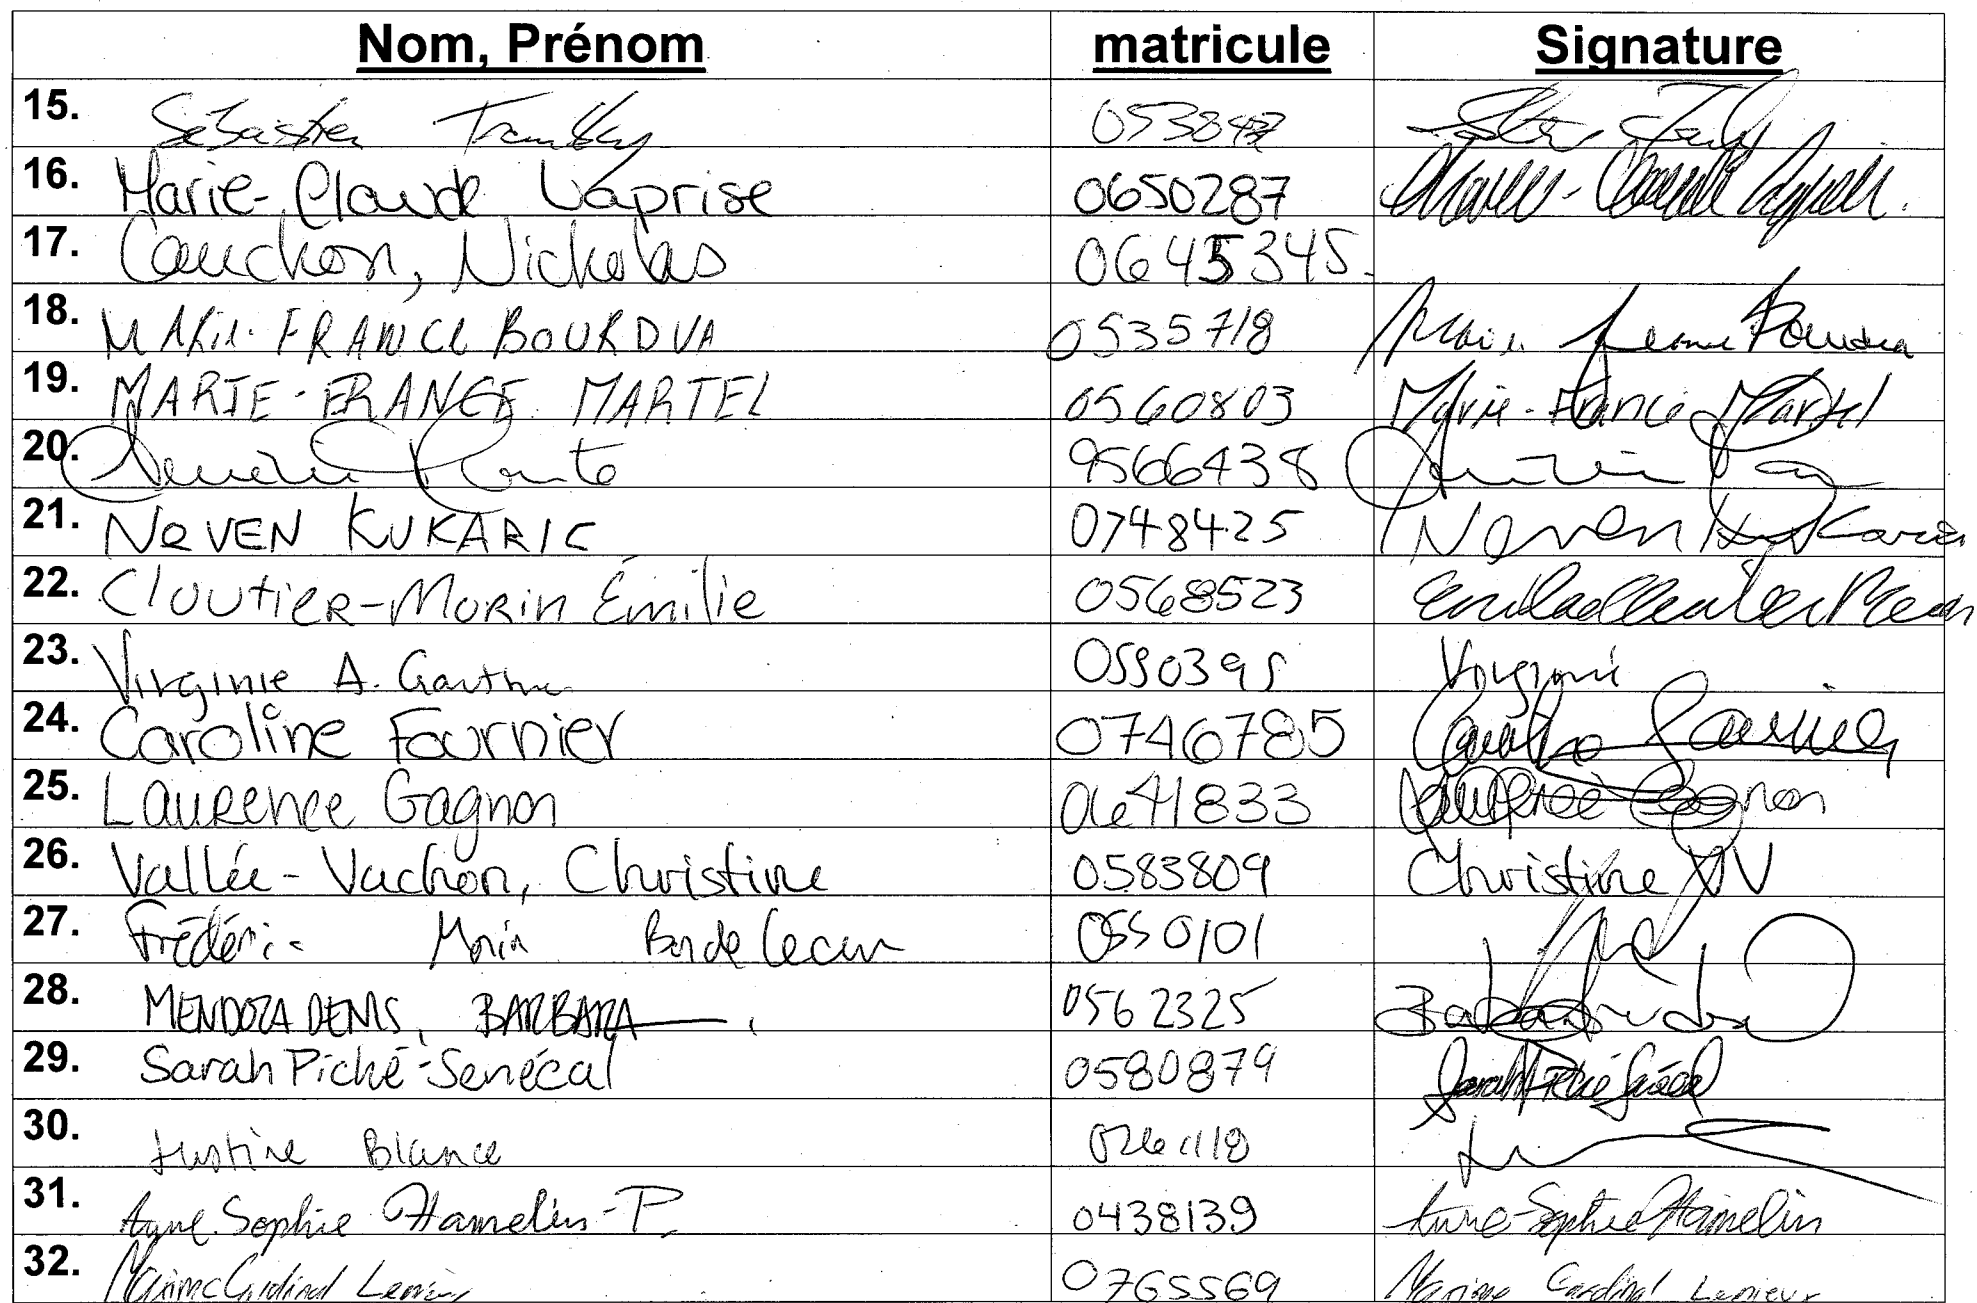 Nom, Prénom matricule Signature
15. Sébastien Tremblay 053847
16. Marie-Claude Laprise 0650287
17. Cauchon, Nickolas 0645345
18. MARie-FRANCE BOURDUA 0535718
19. MARIE-FRANCE MARTEL 0560803 Marie-France Martel
20. 9566438
21. NEVEN KUKARIC 0748425 Neven Kukaric
22. Cloutier-Morin Émilie 0568523
23. Virginie A. Gauthier 0550395 Virginie
24. Caroline Fournier 0746785 Caroline Fournier
25. Laurence Gagnon 0641833 Laurence Gagnon
26. Vallée-Vachon, Christine 0583809 Christine VV
27. Frédéric Morin Bordeleau 0550101
28. MENDOZA DENIS, BARBARA 0562325
29. Sarah Piché-Senécal 0580879 Sarah Piché Senécal
30. Justine Blance
31. Anne-Sophie Hamelin-P. 0438139 Anne-Sophie Hamelin
32. Maxime Cardinal Lemieux 0765569 Maxime Cardinal Lemieux